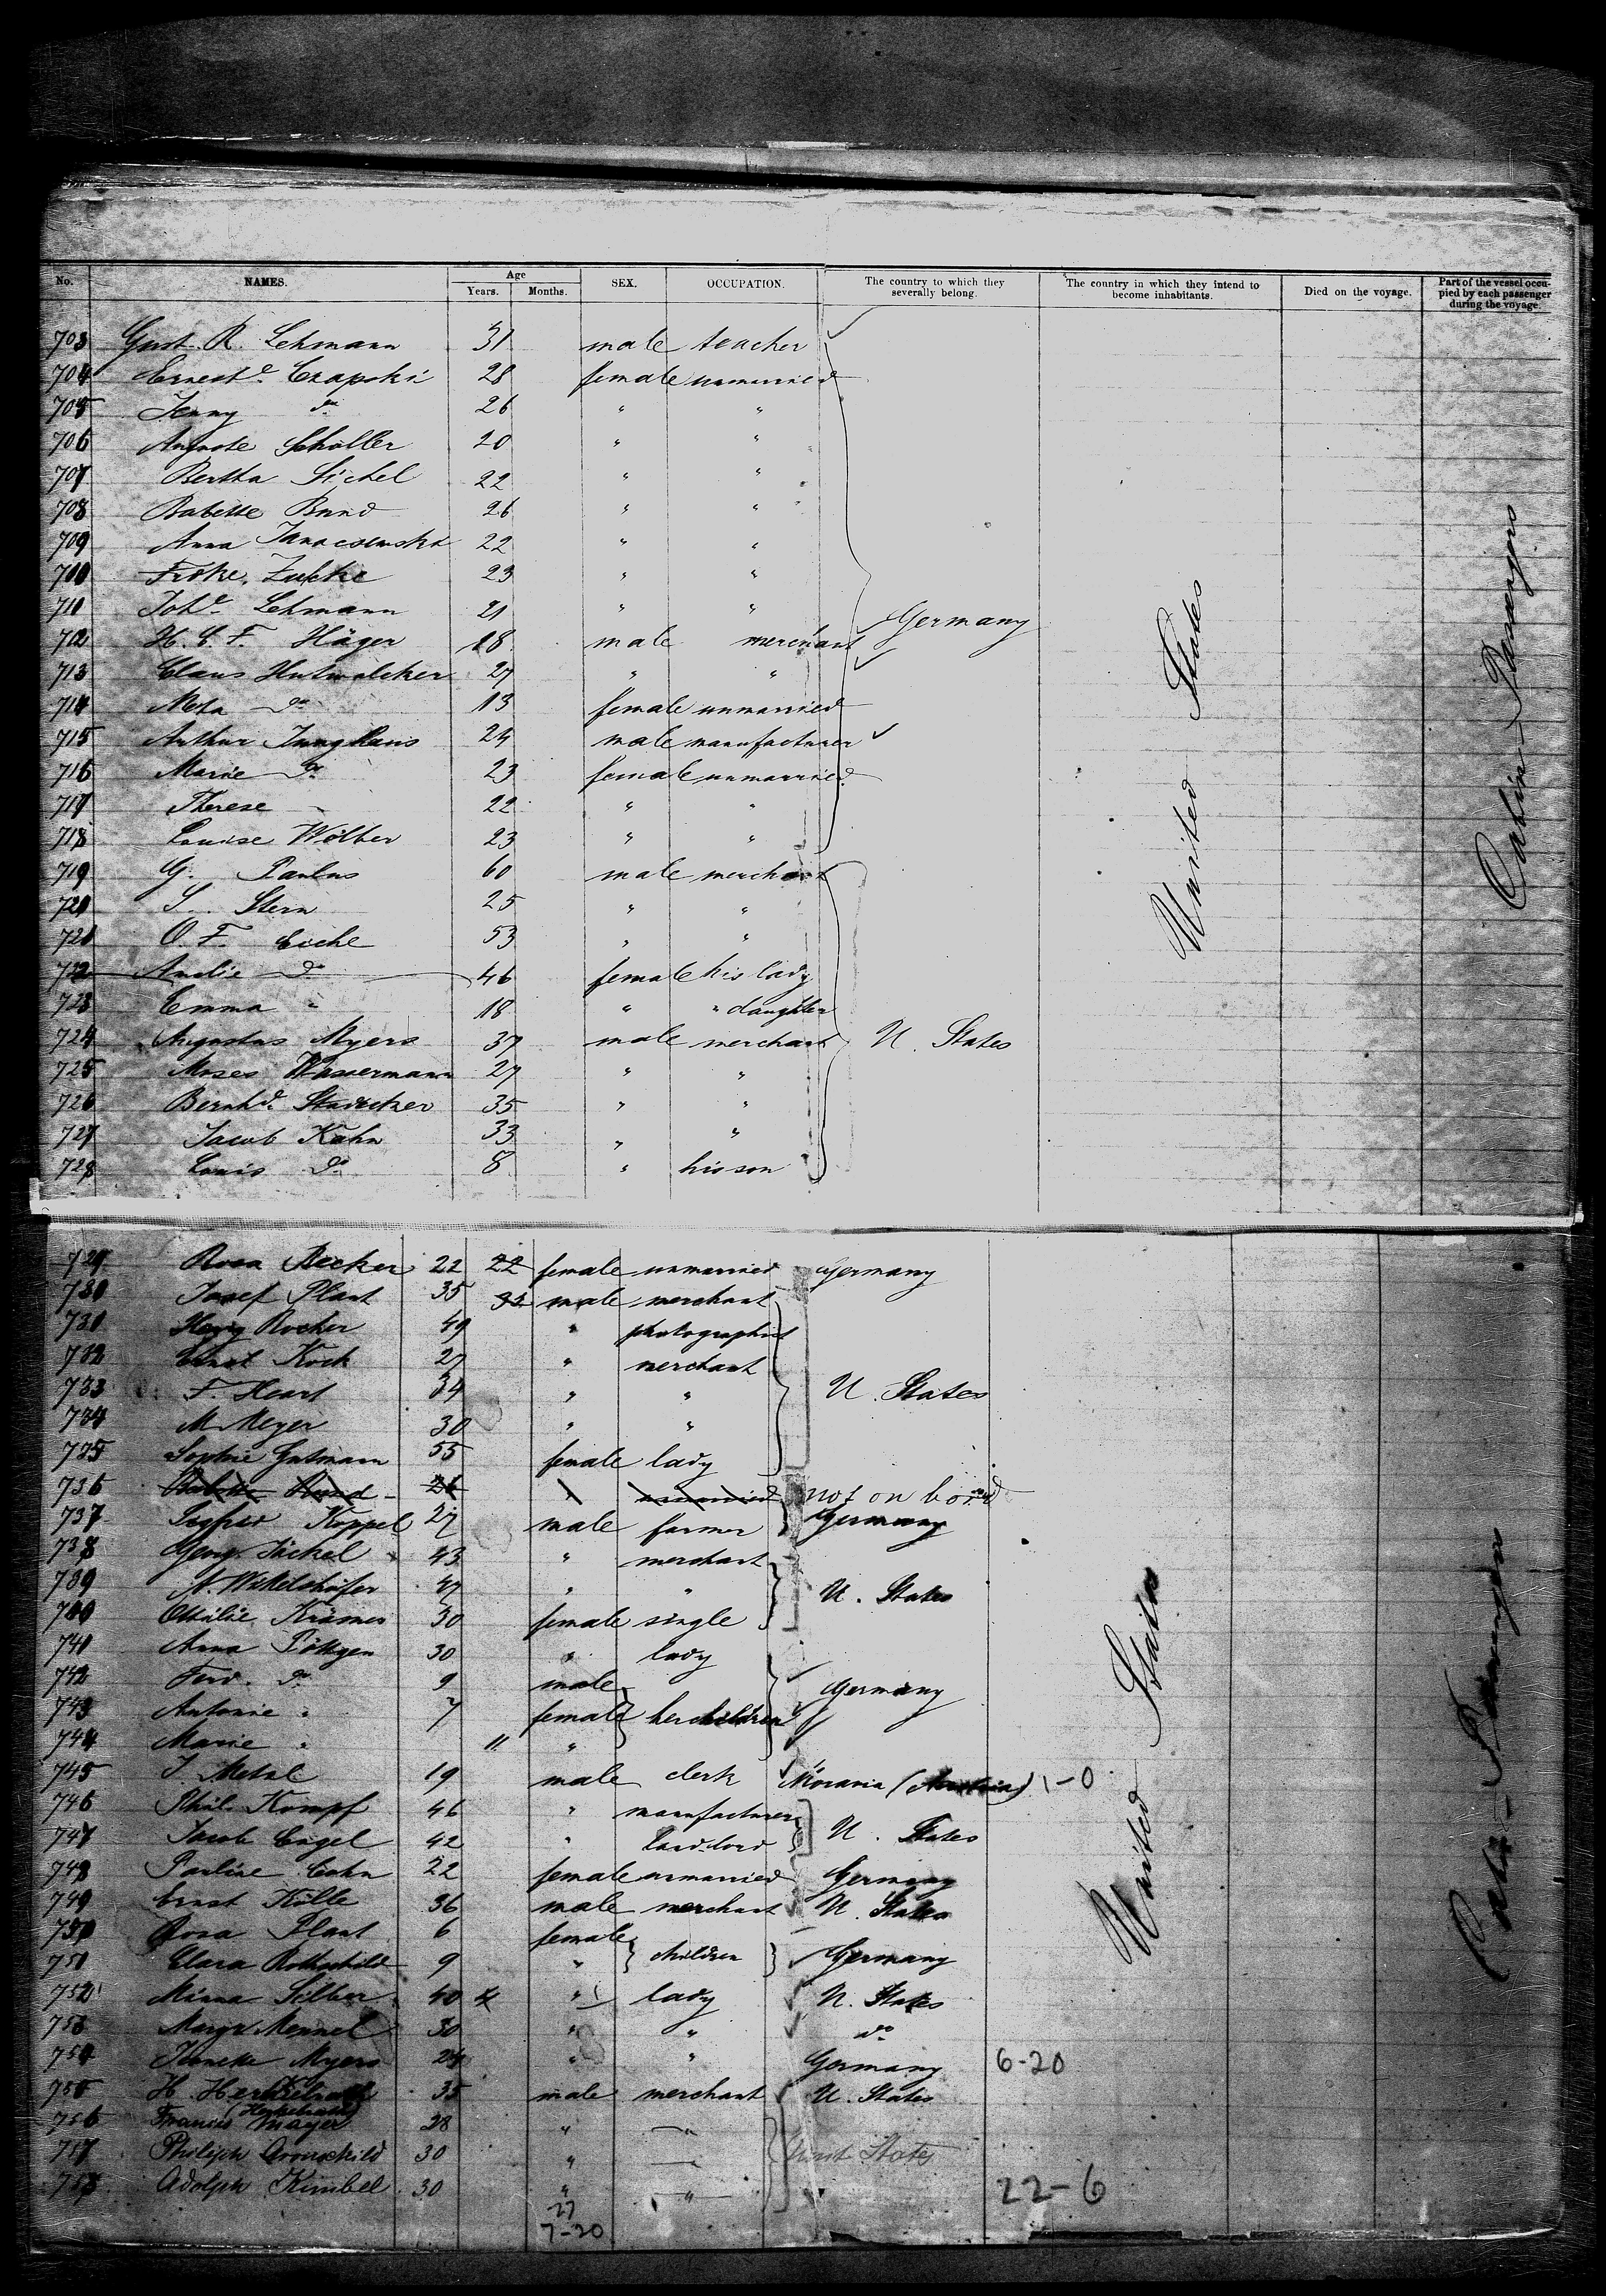 No. NAMES. Age Years. Months. SEX. OCCUPATION. The country to which they severally belong. The country in which they intend to become inhabitants. Died on the voyage. Part of the vessel occupied by each passenger during the voyage.
703 Gust. R. Lehmann 31 male teacher
704 Ernest.e Czapski 28 female unmarried
705 Jenny do 26 " "
706 Auguste Schöller 20 " "
707 Bertha Sichel 22 " "
708 Babette Bund 26 " "
709 Anna 22 " "
710 Frdke. 23 " "
711 Joh.e Lehmann 21 " "
Germany
712 H. C. F. Häger 18 male merchant
713 Claus Hutwalcker 27 " "
714 Meta do 13 female unmarried
715 Arthur Junghans 24 male manufacturer
716 Marie do 23 female unmarried
717 Therese 22 " "
718 Louise Wölber 23 " "
United States
Cabin Passengers
719 G. Paulus 60 male merchant
720 S. Stern 25 " "
721 O. F. Eiche 53 " "
722 Amalie do 46 female his lady
723 Emma " 18 " " daughter
724 Augustus Myers 37 male merchant U. States
725 Moses Wassermann 27 " "
726 Bernhd. Stadecker 35 " "
727 Jacob Kahn 33 " "
728 Louis do 8 " his son
729 Rosa Becker 22 22 female unmarried Germany
730 Josef Plaut 35 35 male merchant
731 Rocher 49 " photographist
732 Ernst Koch 27 " merchant
733 F. Heart 34 " " U. States
734 M. Meyer 30 " "
735 Sophie Gutmann 55 female lady
736 Babette Bund 26 " unmarried not on board
737 Siegfried Koppel 27 male farmer Germany
738 Georg Jäckel 43 " merchant
739 N. Wikelshöfer 47 " " U. States
740 Ottilie Krämer 30 female single
741 Anna Pöttgen 30 " lady
742 Ferd. do 9 male
Germany
743 Antonie " 7 female her children
744 Marie " 11 "
745 J. Metal 19 male clerk Moravia (Austria) 1-0
746 Phil. Kompf 46 " manufacturer
747 Jacob Engel 42 " landlord U. States
748 Pauline Cohn 22 female unmarried Germany
749 Ernst Kölle 36 male merchant U. States
750 Rosa Plaut 6 female
751 Clara Rothschild 9 " children Germany
752 Minna Silber 40 " lady U. States
753 Mennel 30 " " do
754 Myers 24 " " Germany 6-20
755 H. 35 male merchant U. States
756 Francis Mayer 28 " "
757 Philiph Cronschild 30 " " Unit States
758 Adolph Kimbel 30 " "
22-6
27
7-20
United States
Cabin Passengers